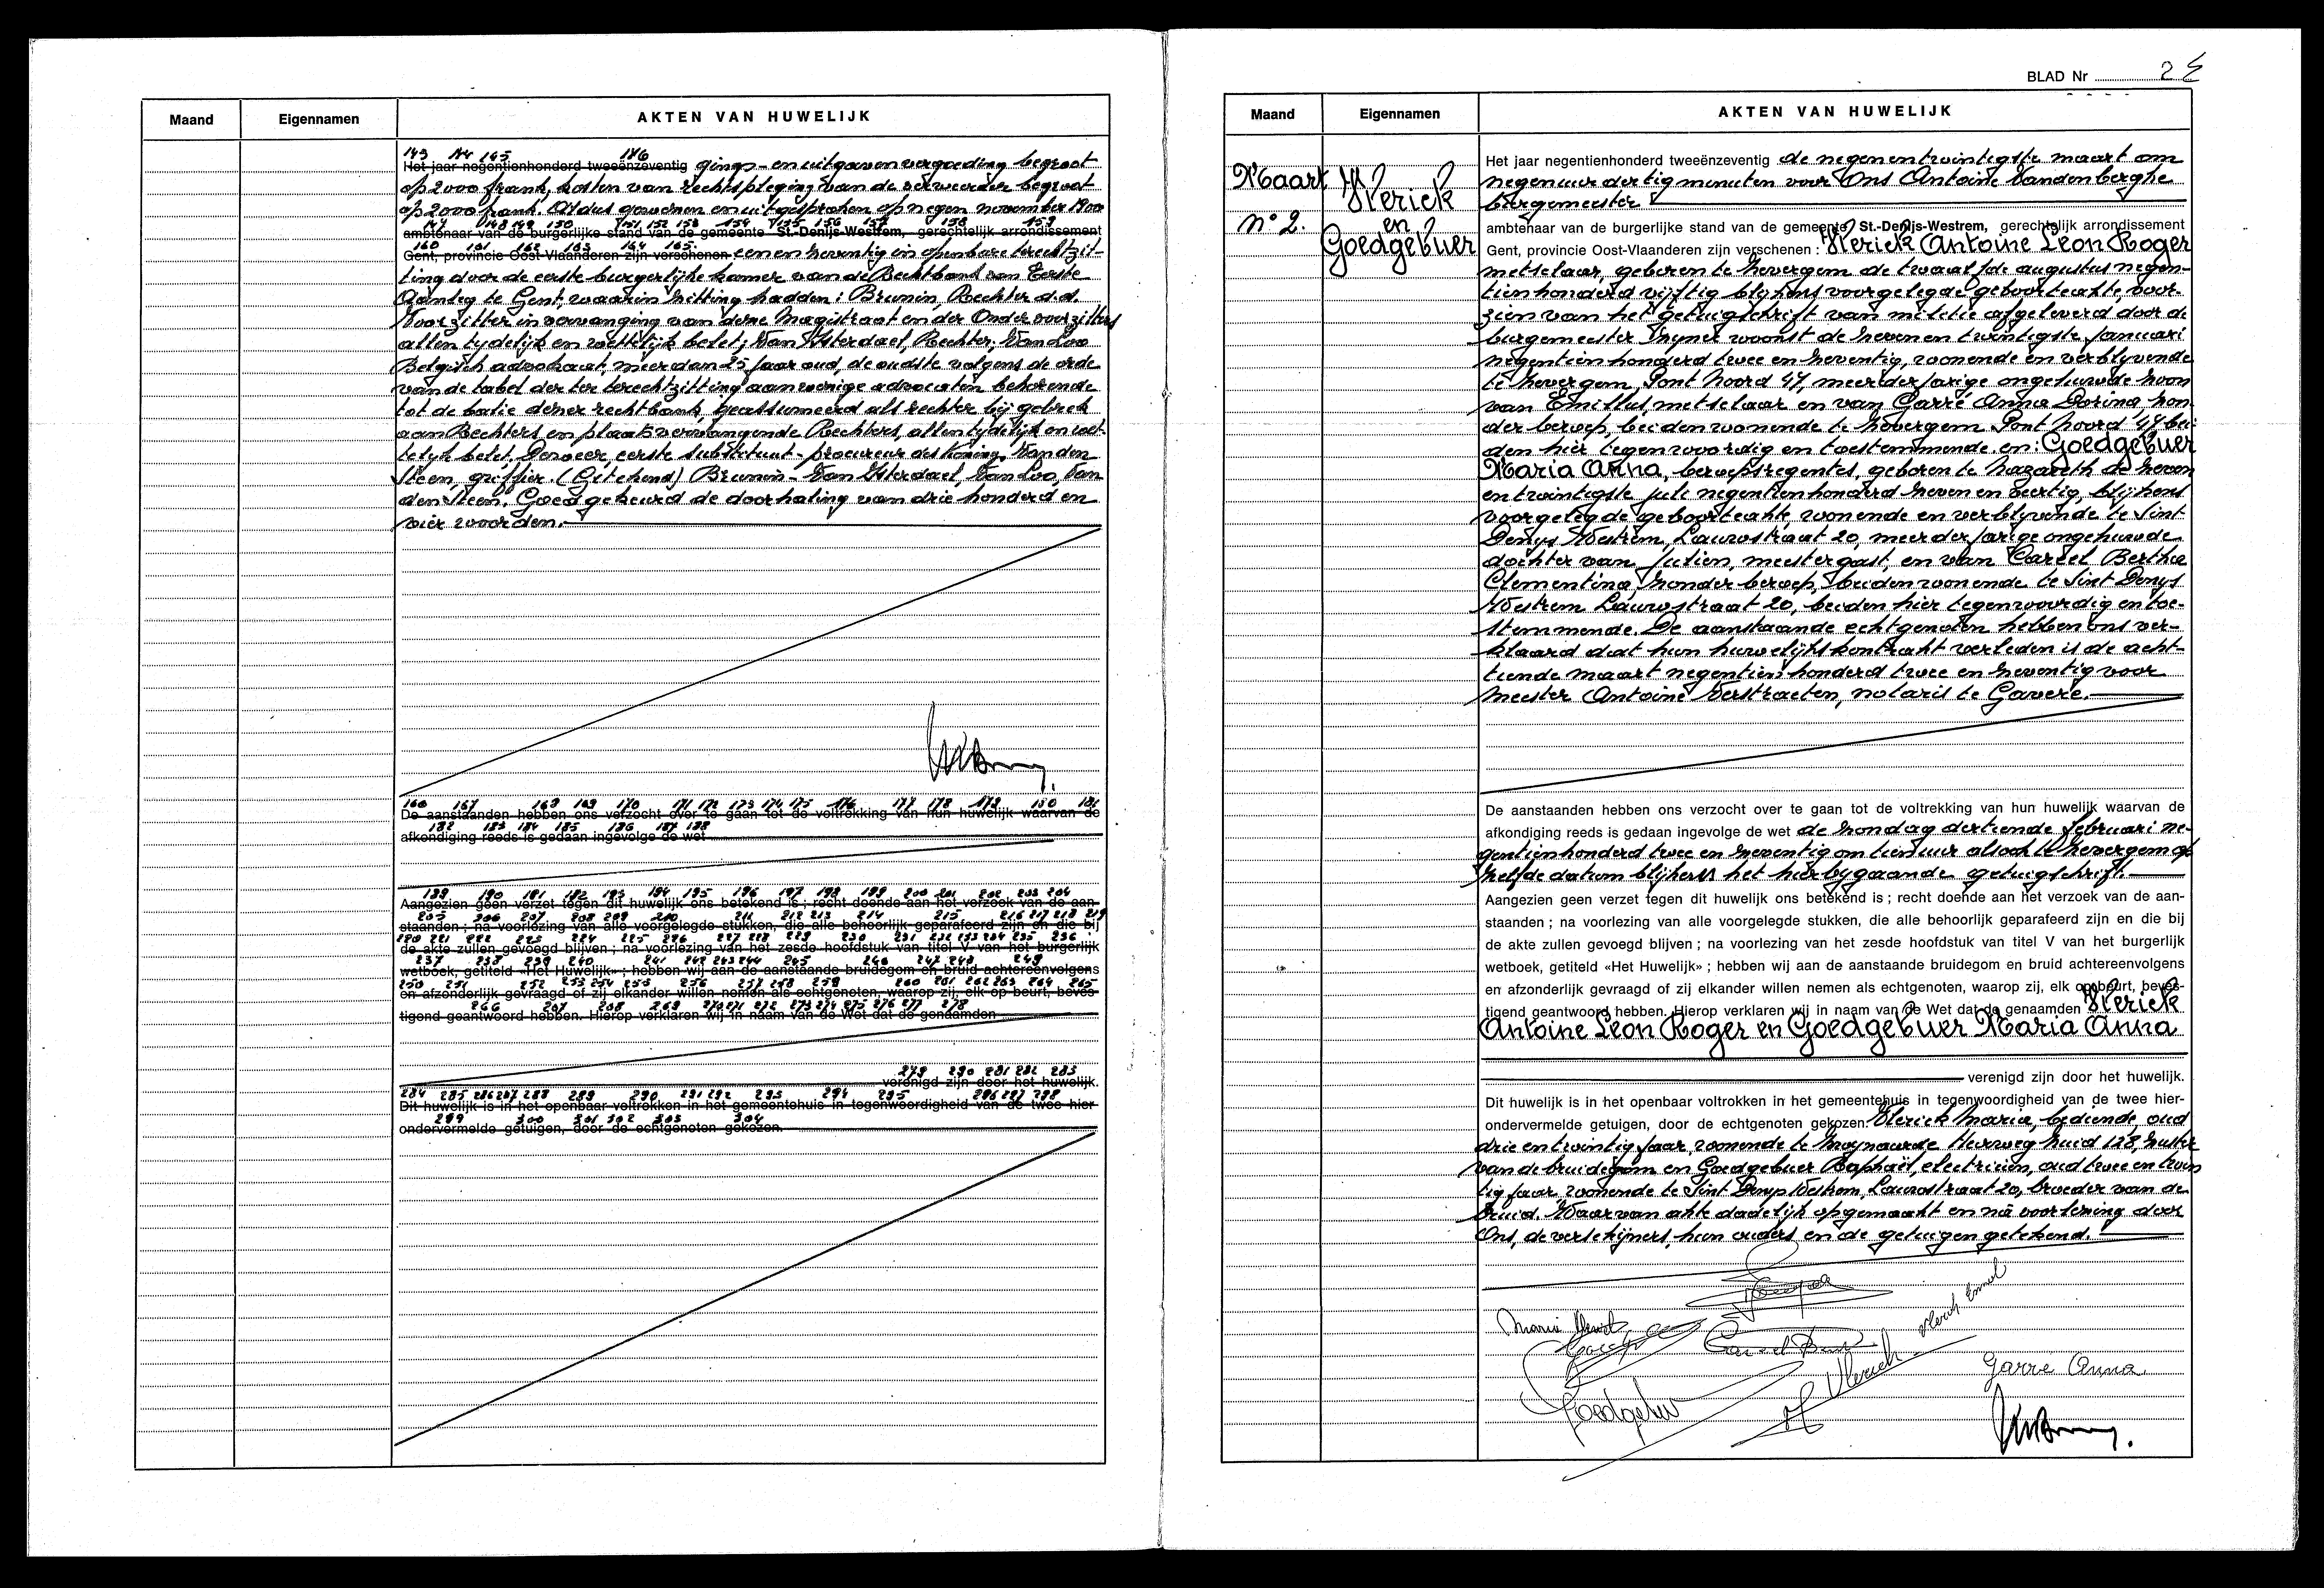 Maand Eigennamen AKTEN VAN HUWELIJK
143 144 145 146
Het jaar negentienhonderd tweeënzeventig gings-en uitgaven vergoeding begroot
op 2000 frank, kosten van rechtspleging van de verweerder begroot
op 2000 frank. Aldus gewezen en uitgesproken op negen november 1900
147 148 149 150 151 152 153 154 155 156 157 158 159
ambtenaar van de burgerlijke stand van de gemeente St.-Denijs-Westrem, gerechtelijk arrondissement
160 161 162 163 164 165
Gent, provincie Oost-Vlaanderen zijn verschenen een en zeventig in openbare terechtzit-
ting door de eerste burgerlijke kamer van de Rechtbank van Eerste
Aanleg te Gent, waarin zitting hadden: Brunin, Rechter d.d.
Voorzitter in vervanging van dezer Magistraat en der Ondervoorzitters
allen tijdelijk en wettelijk belet; Van Ysterdael, Rechter; Van Loo
Belgisch advokaat, meer dan 25 jaar oud, de oudste volgens de orde
van de tabel der ter terechtzitting aanwezige advocaten behorende
tot de balie dezer rechtbank, geassumeerd als rechter bij gebrek
aan Rechters en plaatsvervangende Rechters, allen tijdelijk en wet-
telijk belet, eerste substituut-procureur des Konings, Van den
Steen, griffier. (Getekend) Brunin-Van Ysterdael, Van Loo, Van
den Steen. Goedgekeurd de doorhaling van drie honderd en
vier woorden.
166 167 168 169 170 171 172 173 174 175 176 177 178 179 180 181
De aanstaanden hebben ons verzocht over te gaan tot de voltrekking van hun huwelijk waarvan de
182 183 184 185 186 187 188
afkondiging reeds is gedaan ingevolge de wet
189 190 191 192 193 194 195 196 197 198 199 200 201 202 203 204
Aangezien geen verzet tegen dit huwelijk ons betekend is ; recht doende aan het verzoek van de aan-
205 206 207 208 209 210 211 212 213 214 215 216 217 218 219
staanden ; na voorlezing van alle voorgelegde stukken, die alle behoorlijk geparafeerd zijn en die bij
220 221 222 223 224 225 226 227 228 229 230 231 232 233 234 235 236
de akte zullen gevoegd blijven ; na voorlezing van het zesde hoofdstuk van titel V van het burgerlijk
237 238 239 240 241 242 243 244 245 246 247 248 249
wetboek, getiteld «Het Huwelijk» ; hebben wij aan de aanstaande bruidegom en bruid achtereenvolgens
250 251 252 253 254 255 256 257 258 259 260 261 262 263 264 265
en afzonderlijk gevraagd of zij elkander willen nemen als echtgenoten, waarop zij, elk op beurt, beves-
266 267 268 269 270 271 272 273 274 275 276 277 278
tigend geantwoord hebben. Hierop verklaren wij in naam van de Wet dat de genaamden
279 280 281 282 283
verenigd zijn door het huwelijk.
284 285 286 287 288 289 290 291 292 293 294 295 296 297 298
Dit huwelijk is in het openbaar voltrokken in het gemeentehuis in tegenwoordigheid van de twee hier-
299 300 301 302 303 304
ondervermelde getuigen, door de echtgenoten gekozen.
BLAD Nr 2
Maand Eigennamen AKTEN VAN HUWELIJK
Maart
n° 2.
Vlerick
en
Goedgebuer
Het jaar negentienhonderd tweeënzeventig de negenentwintigste maart om
negen uur dertig minuten voor Ons Antoine Vandenberghe
burgemeester
ambtenaar van de burgerlijke stand van de gemeente St.-Denijs-Westrem, gerechtelijk arrondissement
Gent, provincie Oost-Vlaanderen zijn verschenen : Vlerick Antoine Leon Roger
metselaar, geboren te Zevergem de twaalfde augustus negen-
tienhonderd vijftig blijkens voorgelegde geboorteakte, voor-
zien van het getuigschrift van militie afgeleverd door de
burgemeester zijner woonst de zevenentwintigste januari
negentienhonderd twee en zeventig, wonende en verblijvende
te Zevergem, Pont Noord 47, meerderjarige ongehuwde zoon
van Emillus, metselaar en van Garré Anna Dorina, zon-
der beroep, beiden wonende te Zevergem Pont Noord 47 bei-
den hier tegenwoordig en toestemmende en: Goedgebuer
Maria Anna, beroepsregentes, geboren te Nazareth de zeven
entwintigste juli negentienhonderd zeven en veertig, blijkens
voorgelegde geboorteakte, wonende en verblijvende te Sint
Denys Westrem, Lauwstraat 20, meerderjarige ongehuwde
dochter van Julien, meestergast, en van Careel Bertha
Clementina, zonder beroep, beiden wonende te Sint Denys
Westrem Lauwstraat 20, beiden hier tegenwoordig en toe-
stemmende. De aanstaande echtgenoten hebben ons ver-
klaard dat hun huwelijkskontrakt verleden is de acht-
tiende maart negentienhonderd twee en zeventig voor
meester Antoine Verstraeten, notaris te Gavere.
De aanstaanden hebben ons verzocht over te gaan tot de voltrekking van hun huwelijk waarvan de
afkondiging reeds is gedaan ingevolge de wet de zondag dertiende februari ne-
gentienhonderd twee en zeventig om tien uur alsook te Zevergem op
zelfde datum blijkens het hierbijgaande getuigschrift.
Aangezien geen verzet tegen dit huwelijk ons betekend is ; recht doende aan het verzoek van de aan-
staanden ; na voorlezing van alle voorgelegde stukken, die alle behoorlijk geparafeerd zijn en die bij
de akte zullen gevoegd blijven ; na voorlezing van het zesde hoofdstuk van titel V van het burgerlijk
wetboek, getiteld «Het Huwelijk» ; hebben wij aan de aanstaande bruidegom en bruid achtereenvolgens
en afzonderlijk gevraagd of zij elkander willen nemen als echtgenoten, waarop zij, elk op beurt, beves-
tigend geantwoord hebben. Hierop verklaren wij in naam van de Wet dat de genaamden Vlerick
Antoine Leon Roger en Goedgebuer Maria Anna
verenigd zijn door het huwelijk.
Dit huwelijk is in het openbaar voltrokken in het gemeentehuis in tegenwoordigheid van de twee hier-
ondervermelde getuigen, door de echtgenoten gekozen. Vlerick Maria, bediende, oud
drie entwintig jaar, wonende te Zwynaarde Heerweg Zuid 128, zuster
van de bruidegom en Goedgebuer Raphaël, electricien, oud twee en twin
tig jaar, wonende te Sint Denys Westrem, Lauwstraat 20, broeder van de
bruid. Waarvan akte dadelijk opgemaakt en na voorlezing door
Ons, de verschijners, hun ouders en de getuigen getekend.
Maria Vlerick
Vlerick Emiel
Vlerick
Garre Anna
Goedgebuer